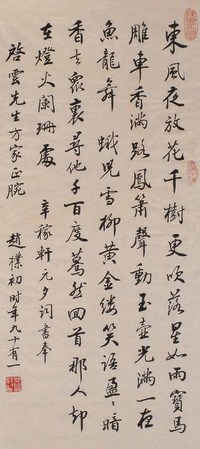 東風夜放花千樹更吹落星如雨寶馬
雕車香滿路鳳簫聲動玉壺光轉一夜
魚龍舞 蛾兒雪柳黃金縷笑語盈〻暗
香去衆裏尋他千百度驀然回首那人却
在燈火闌珊處 辛稼軒元夕詞書奉
啓雲先生方家正腕
趙樸初時年九十有一